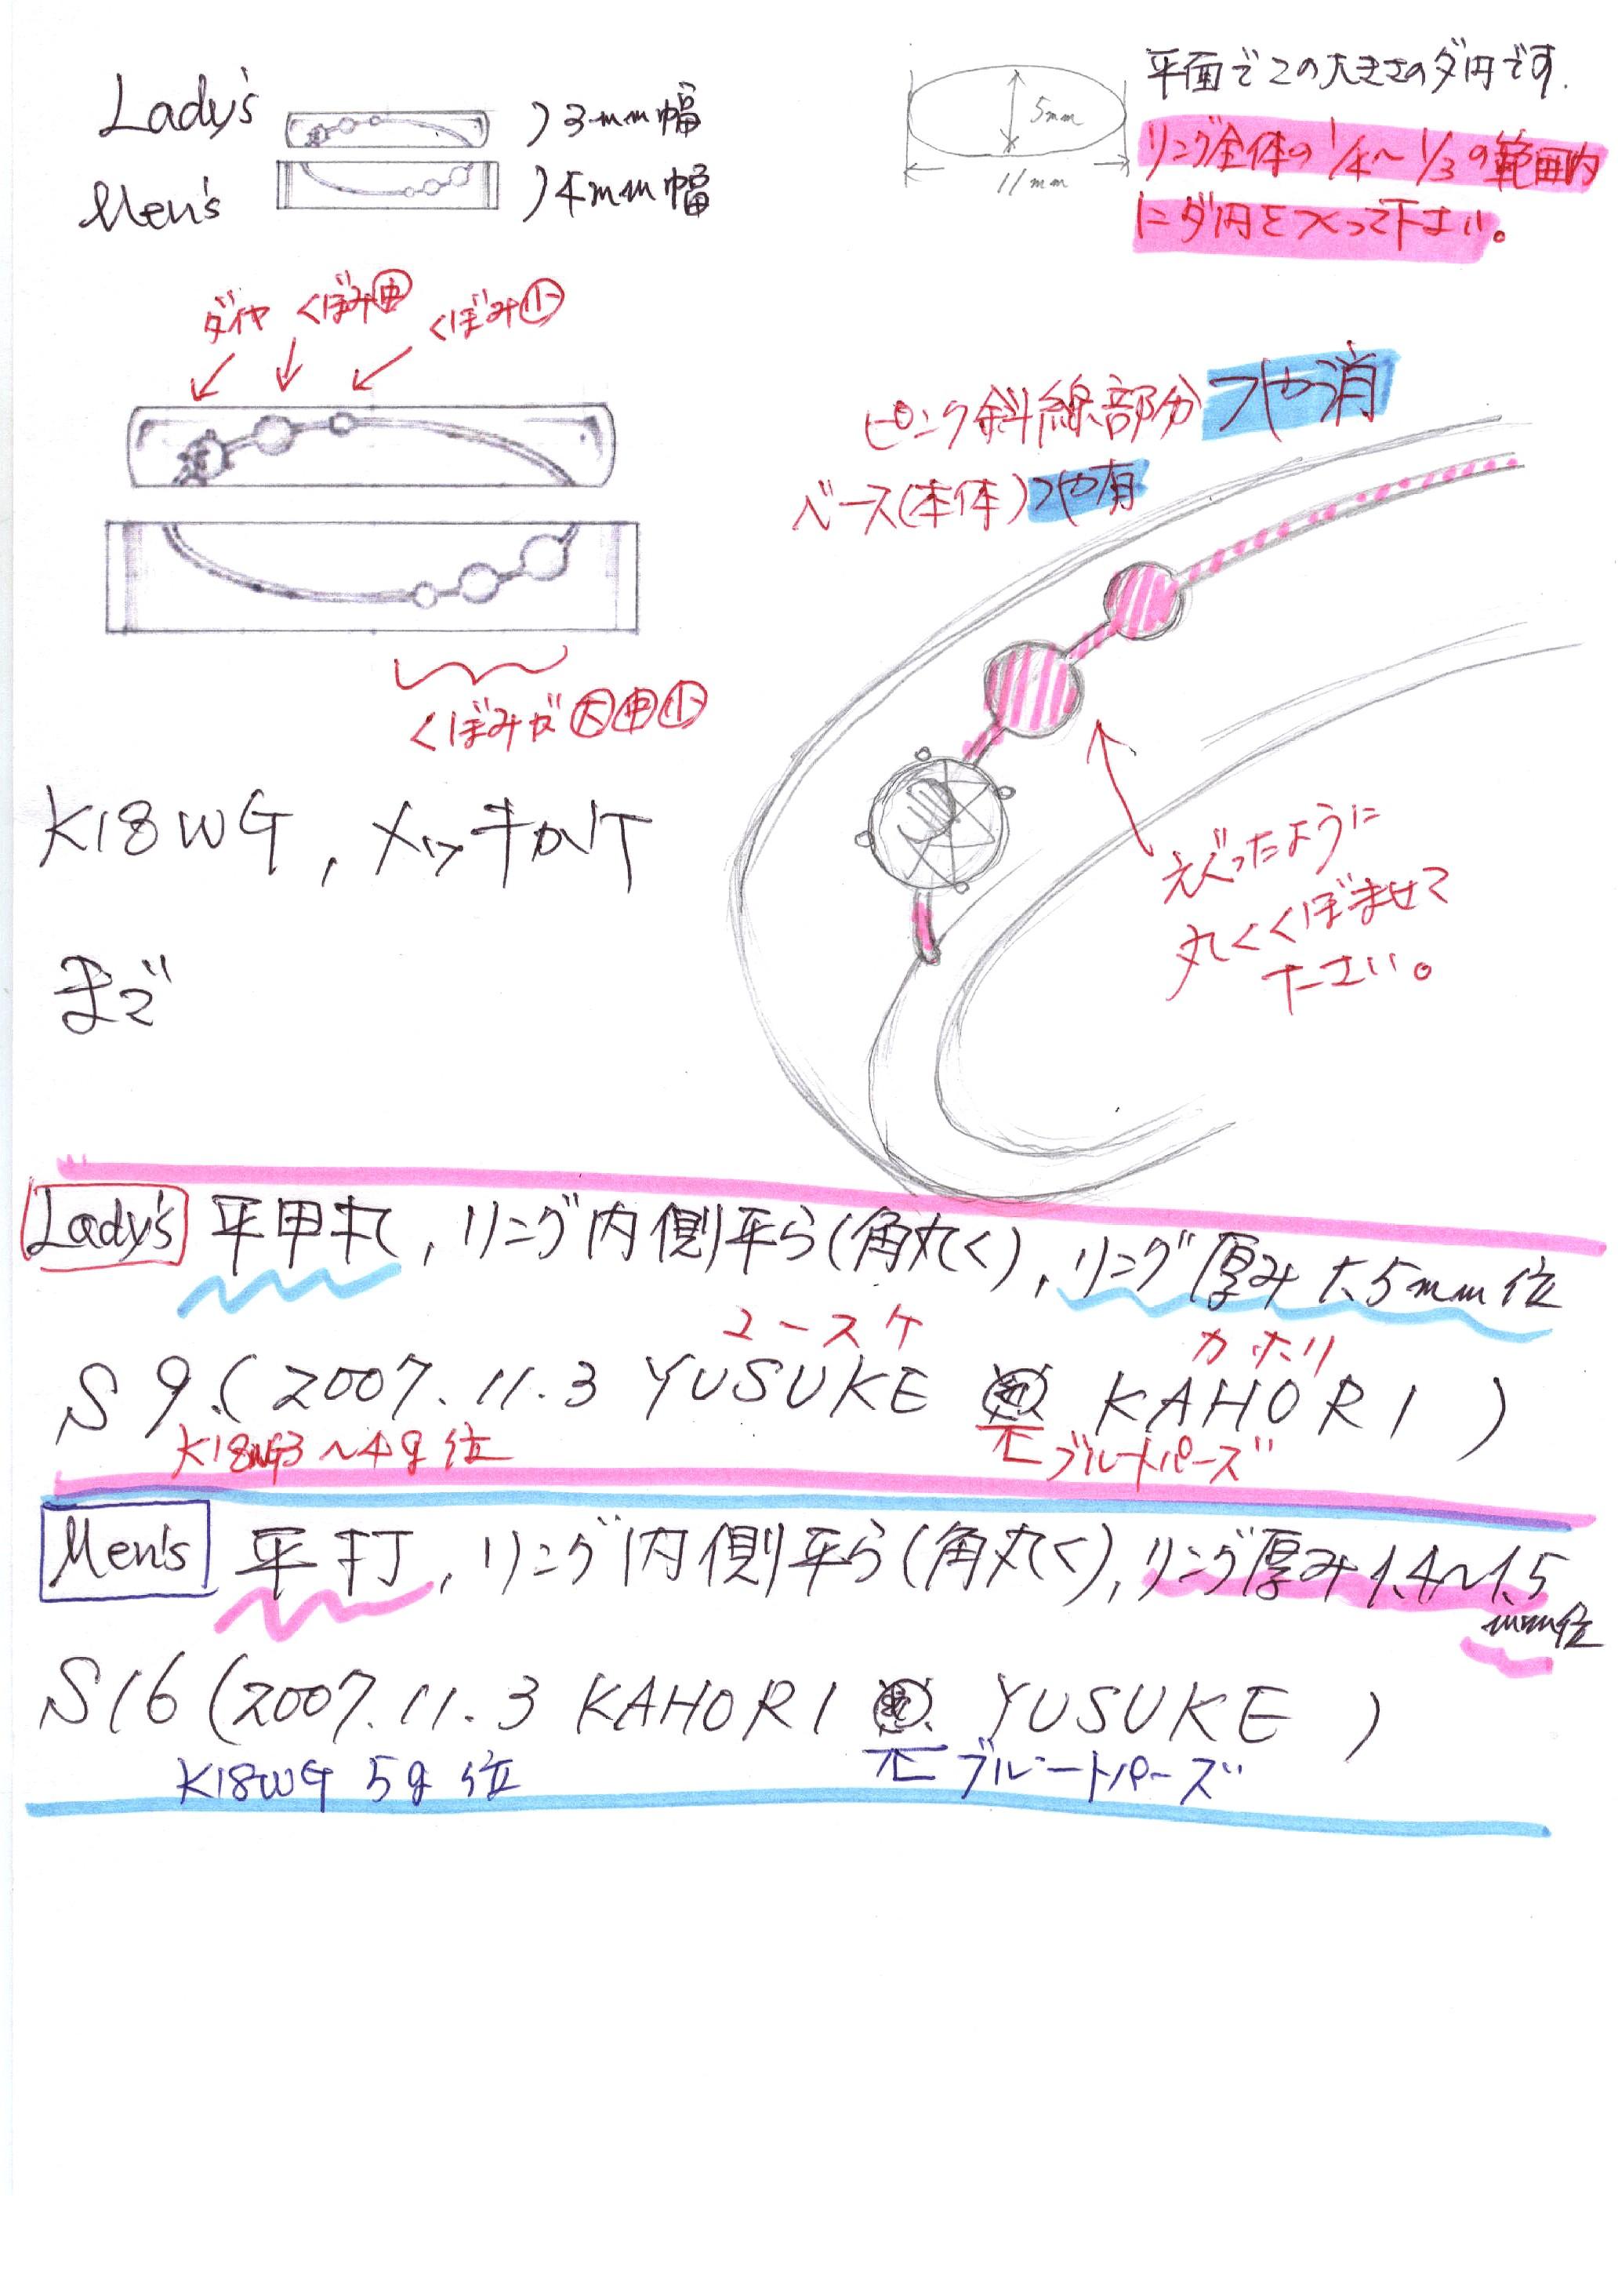 Lady's
)3mm幅
Men's
)4mm幅
5mm
11mm
平面でこの大きさのダ円です.
リング全体の1/4～1/3の範囲内
にダ円をつくって下さい。
ダイヤ
くぼみ㊥
くぼみ㊦
くぼみが
ピンク斜線部分つや消
ベース(本体)つや有
えぐったように
丸くくぼませて
下さい。
K18WG,メッキかけ
まで
Lady's 平甲丸,リング内側平ら(角丸く),リング厚み1.5mm位
ユースケ カホリ
S9.(2007.11.3 YUSUKE KAHORI)
K18WG3～4g位
ブルートパーズ
Men's 平打,リング内側平ら(角丸く),リング厚み1.4～1.5
mm位
S16(2007.11.3 KAHORI YUSUKE)
K18WG 5g位
ブルートパーズ